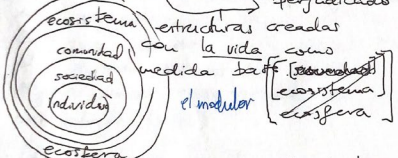 perjudicados
ecosistema
comunidad
sociedad
individuo
ecosfera
estructuras creadas
con la vida como
medida base
el modulor
ecosistema
ecosfera